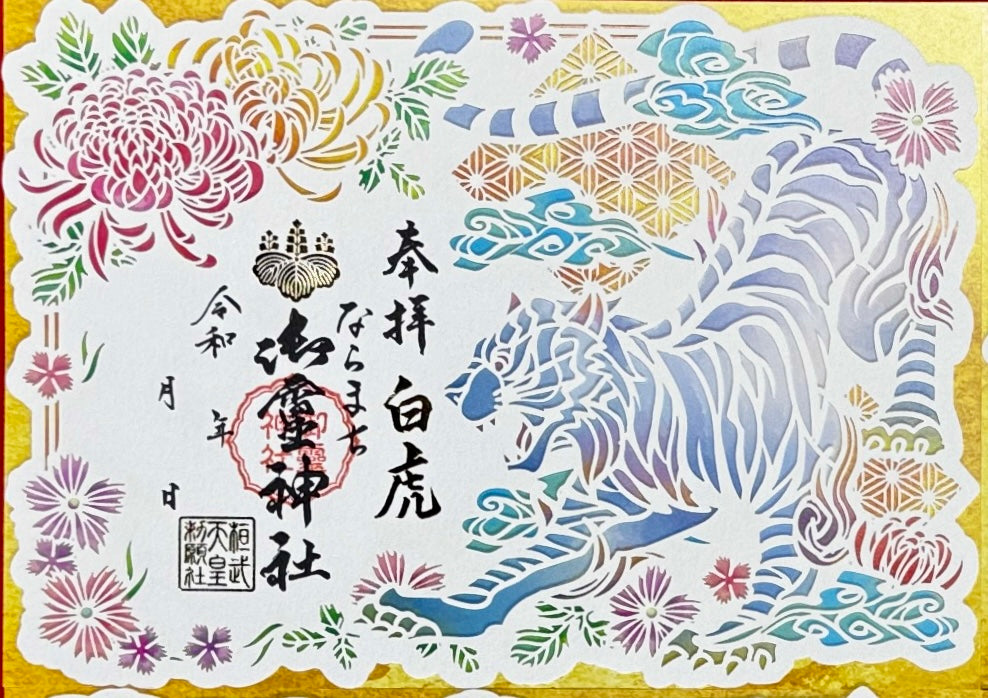 奉拝 白虎
ならまち
御霊神社
御霊神社
令和 年
月 日
桓武
天皇
勅願社